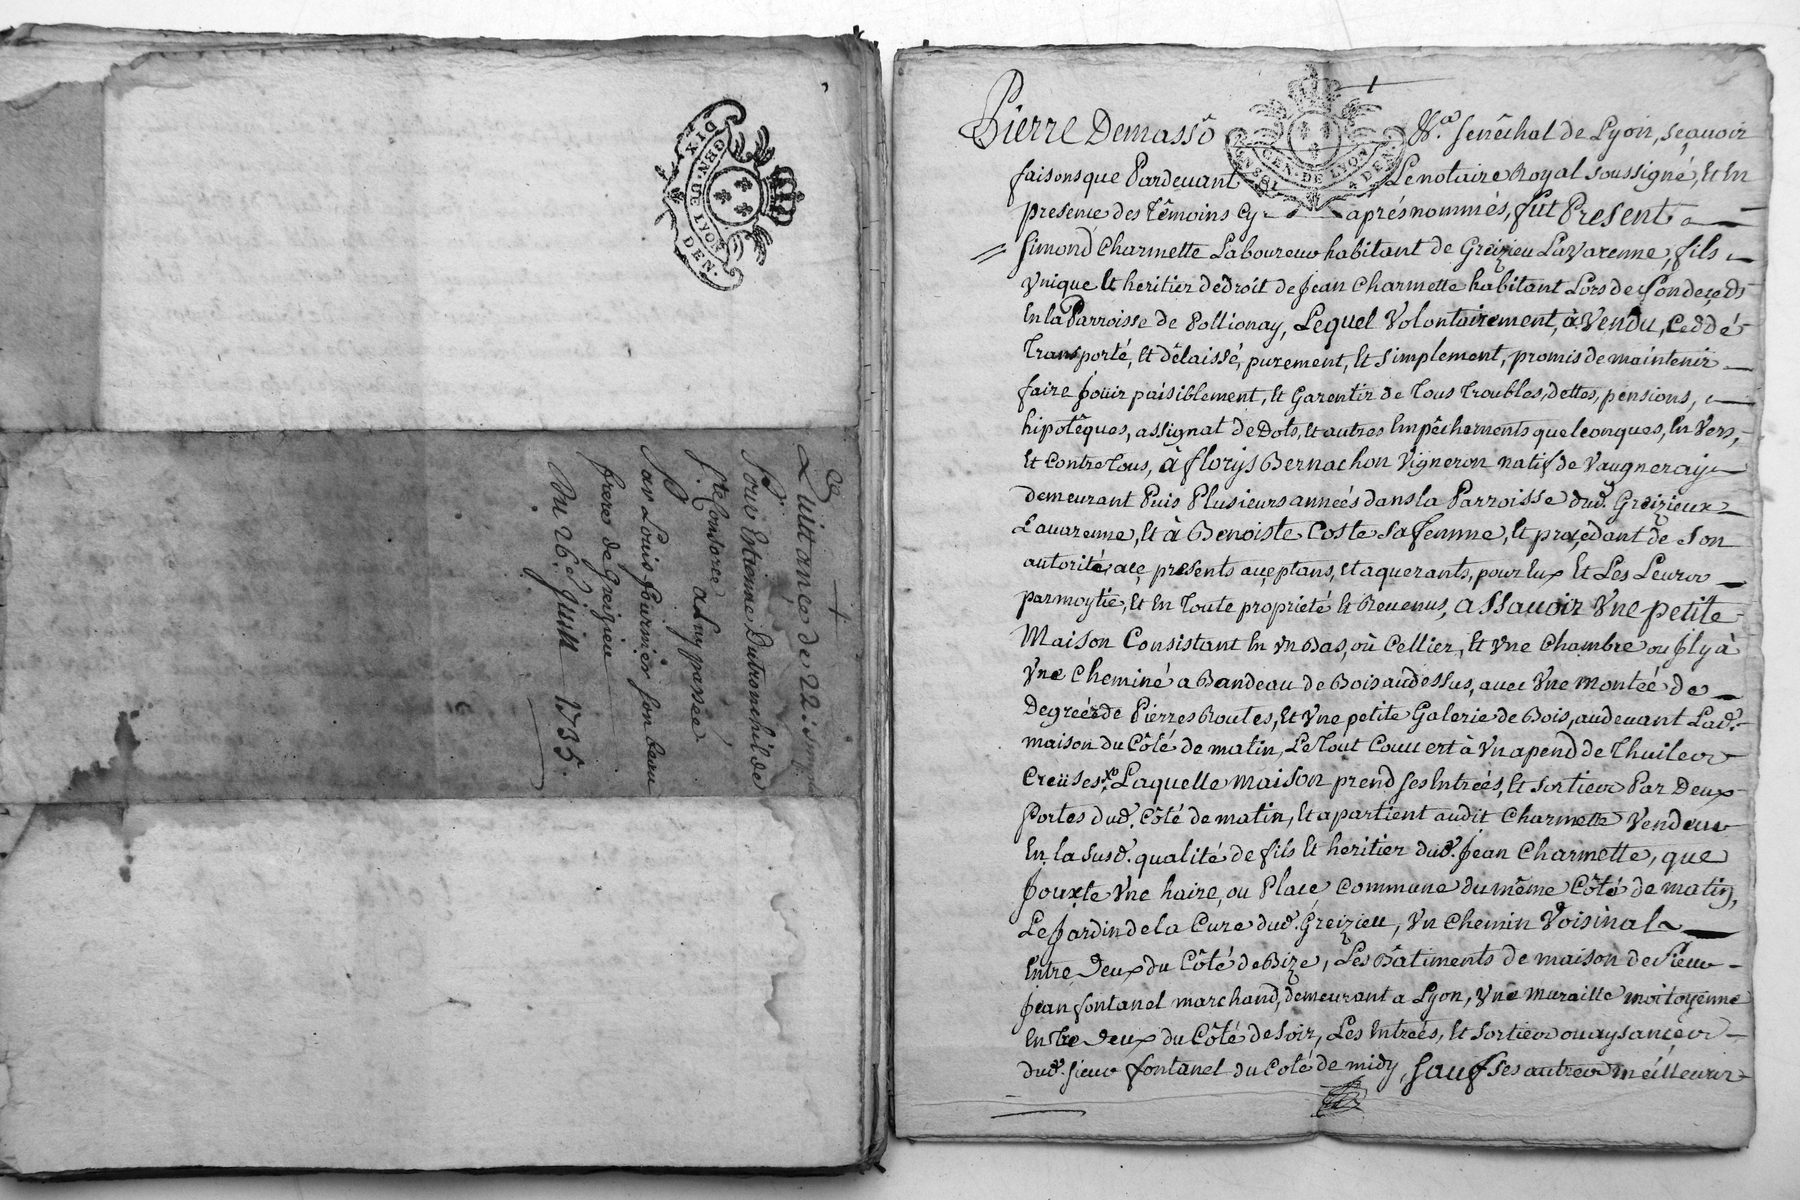 DIX
GEN. DE LYON
DEN.
Quittance de 22:
Pour Estienne Dutronchil de
Ste Consorce a luy passée
Par Louis fournier son beau
frere de Greizieu
Du 26e. Juin 1735.
Pierre Demasso
GEN. DE LYON
4 DEN.
Sénéchal de Lyon, sçauoir
faisons que Pardeuant Le notaire Royal soussigné, Et En
presence des Témoins Cy aprés nommés, fut Present
Simond Charmette Laboureur habitant de Greizieu La Varenne, fils
Vnique Et heritier de droit de Jean Charmette habitant Lors de son deceds
En la Parroisse de Pollionay, Lequel Volontairement, à Vendu, Ceddé
Transporté, Et délaissé, purement, Et simplement, promis de maintenir
faire Joüir paisiblement, Et Garentir de Tous Troubles, dettes, pensions,
hipotêques, assignat de Dots, Et autres Empêchements quelconques, En Vers,
Et Contre Tous, à florys Bernachon Vigneron natif de Vaugneray
demeurant Puis Plusieurs années dans la Parroisse dud. Greizieux
Lauarenne, Et à Benoiste Coste sa femme, Et procedant de son
autorité, ace presents aceptans, Et aquerants, pour Eux Et Les Leurs
par moytié, Et En Toute proprieté Et Reuenus, assauoir Vne petite
Maison Consistant En Vn Bas, où Cellier, Et Vne Chambre ou Jl y à
Vne Cheminé a Bandeau de Bois au dessus, auec Vne montée de
Degréér de Pierres Routes, Et Vne petite Galerie de Bois, au deuant Lad.
maison du Côté de matin, Le Tout Couuert à Vn apend de Thuiles
Creüses, Laquelle maison prend ses Entrées, Et sorties Par Deux
Portes dud. Côté de matin, Et apartient audit Charmette Vendeur
En la susd. qualité de fils Et heritier dud. Jean Charmette, que
Jouxte Vne haire, ou Place Commune du même Côté de matin,
Le Jardin de la Cure dud. Greizieu, Vn Chemin Voisinal
Entre Deux du Côté de Bize, Les Bâtiments de maison de sieur
Jean fontanel marchand, demeurant a Lyon, Vne muraille moitoyenne
Entre Deux du Côté de soir, Les Entrées, Et sorties ou aysances
dud. sieur fontanel du Coté de midy, sauf ses autres meilleurs